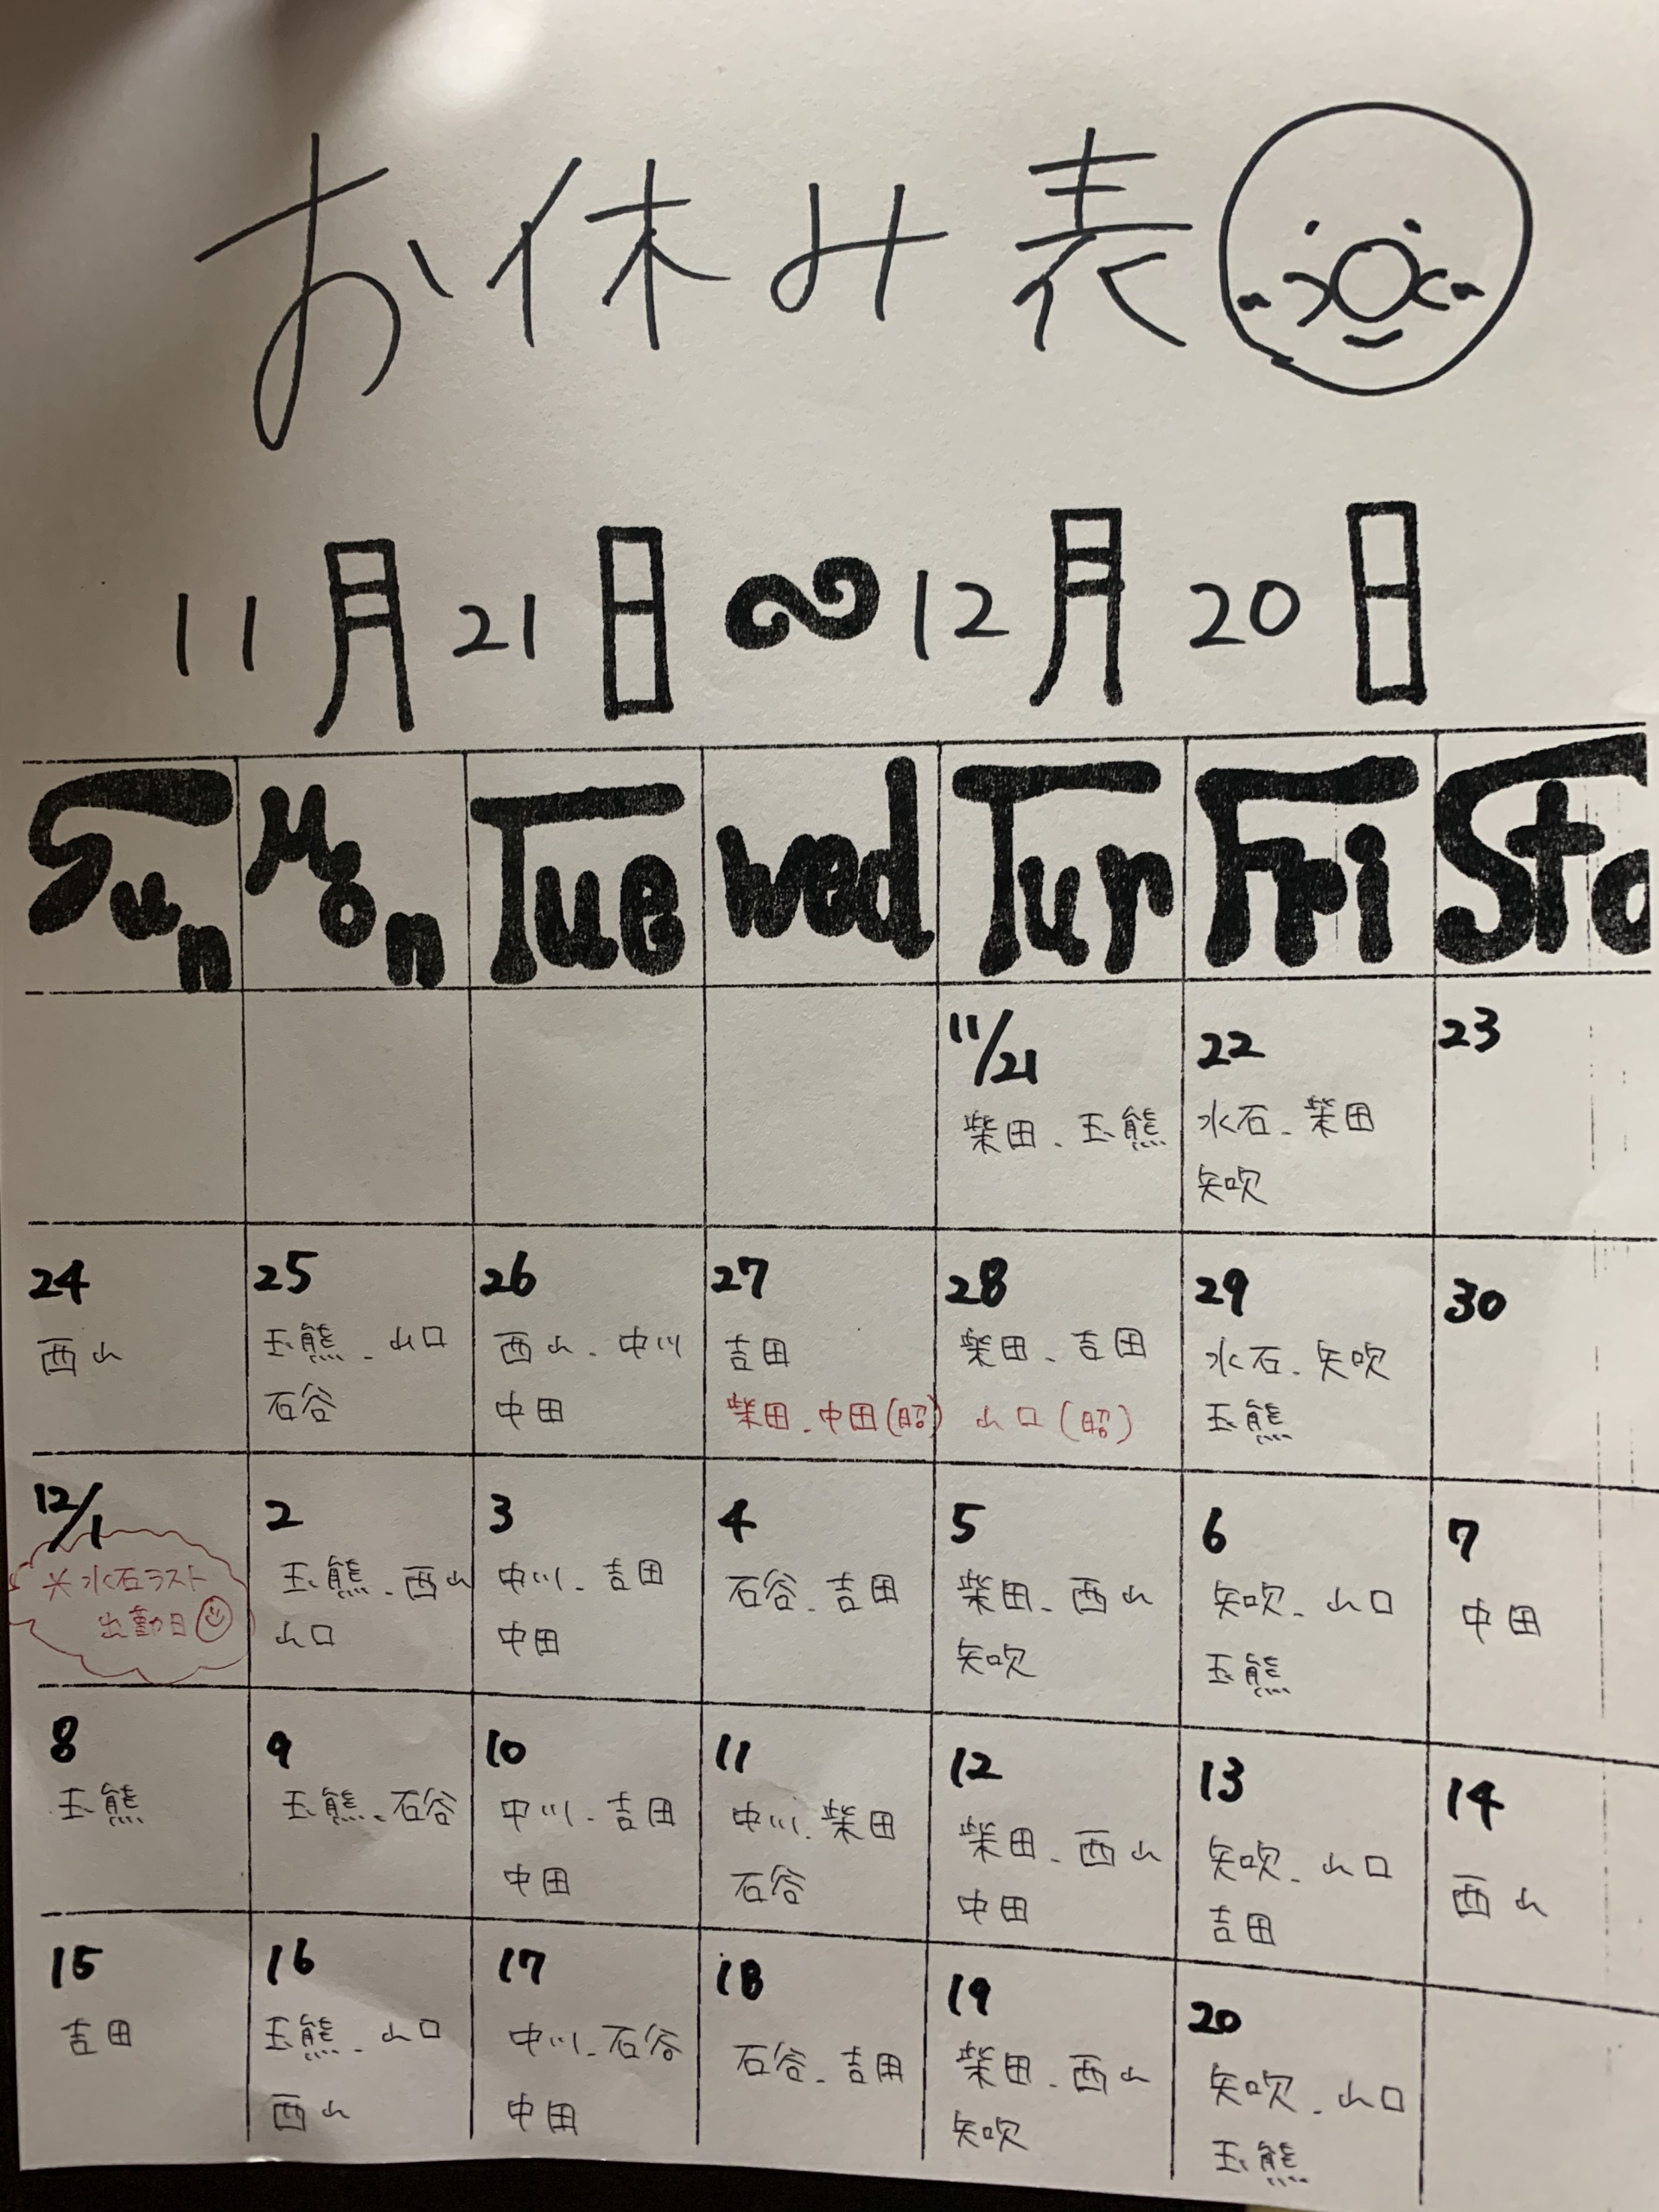 お休み表
11月21日~12月20日
Sun Mon Tue wed Tur Fri Sta
11/21 22 23
柴田、玉熊 水石、柴田
矢吹
24 25 26 27 28 29 30
西山 玉熊、山口 西山、中川 吉田 柴田、吉田 水石、矢吹
石谷 中田 柴田、中田(昭) 山口(昭) 玉熊
12/1 2 3 4 5 6 7
*水石ラスト 玉熊、西山 中川、吉田 石谷、吉田 柴田、西山 矢吹、山口 中田
出勤日 山口 中田 矢吹 玉熊
8 9 10 11 12 13 14
玉熊 玉熊、石谷 中川、吉田 中川、柴田 柴田、西山 矢吹、山口 西山
中田 石谷 中田 吉田
15 16 17 18 19 20
吉田 玉熊、山口 中川、石谷 石谷、吉田 柴田、西山 矢吹、山口
西山 中田 矢吹 玉熊